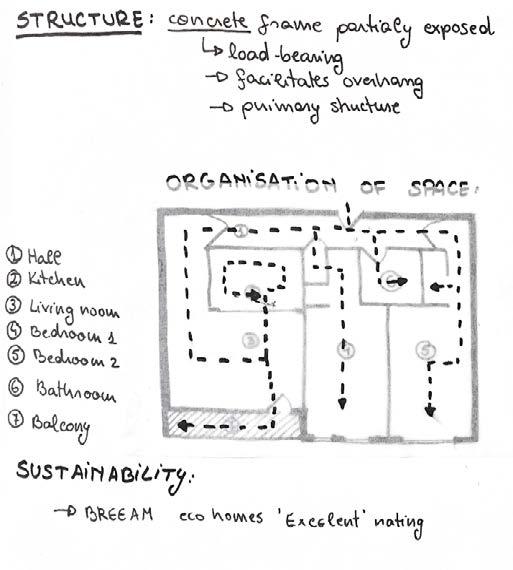 STRUCTURE: concrete frame partialy exposed
↳ load-bearing
→ facilitates overhang
→ primary structure
ORGANISATION OF SPACE:
① Hall
② Kitchen
③ Living room
④ Bedroom 1
⑤ Bedroom 2
⑥ Bathroom
⑦ Balcony
1
3
4
5
6
SUSTAINABILITY:
→ BREEAM eco homes 'Excelent' rating